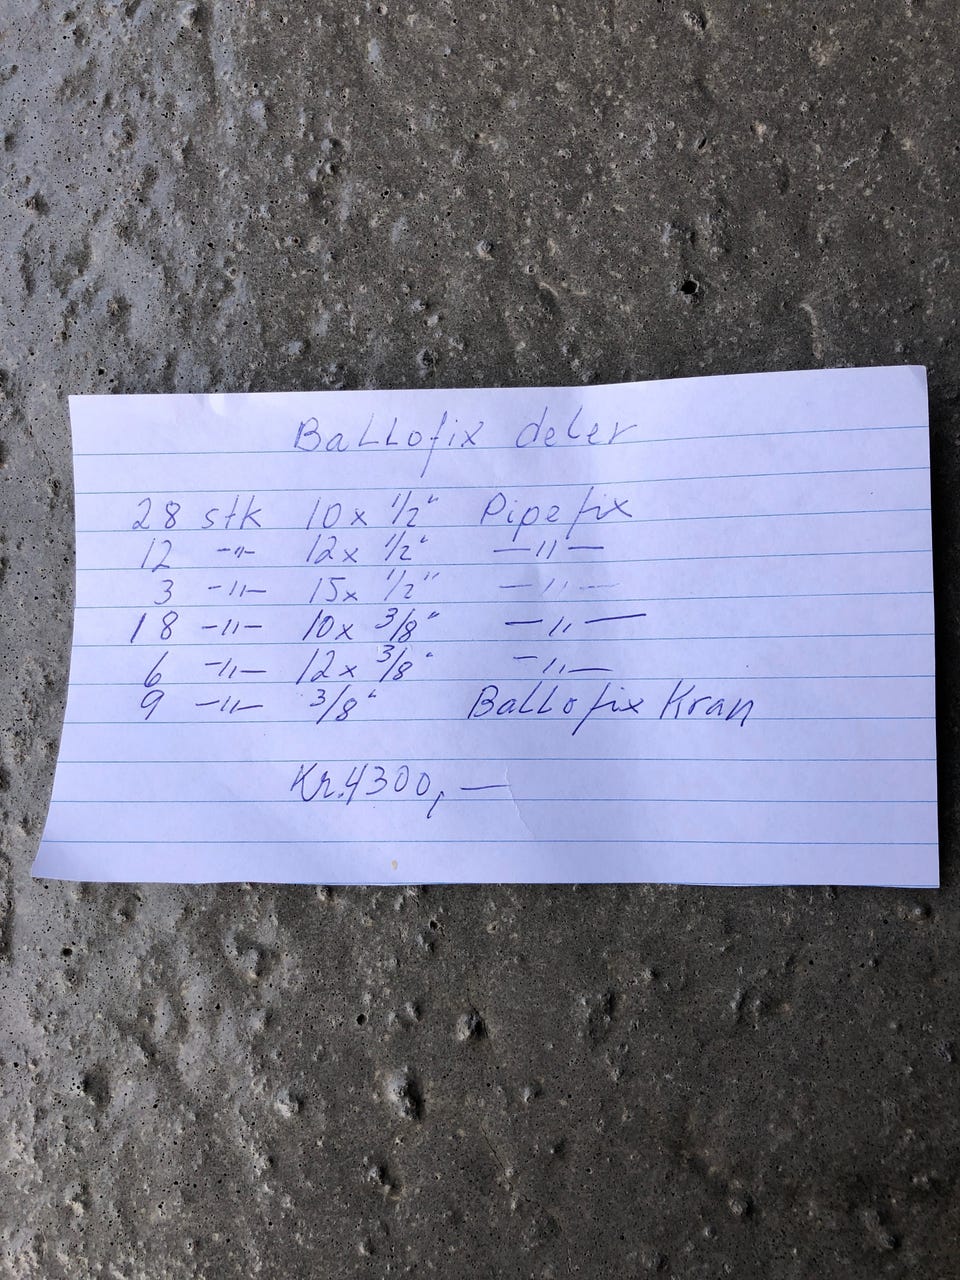 Ballofix deler
28 stk 10 x 1/2" Pipefix
12 -"- 12 x 1/2" -"-
3 -"- 15 x 1/2" -"-
18 -"- 10 x 3/8" -"-
6 -"- 12 x 3/8" -"-
9 -"- 3/8" Ballofix Kran
Kr. 4300,-